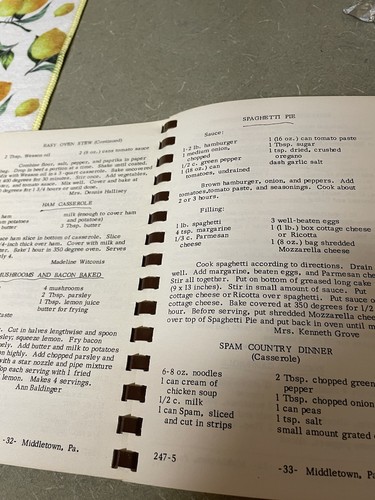 EASY OVEN STEW (Continued)
2 Tbsp. Wesson oil 2 (8 oz.) cans tomato sauce
Combine flour, salt, pepper, and paprika in paper
Shake until coated.
Wesson oil in a 3-quart casserole. Bake uncovered
degrees for 30 minutes. Stir once. Add vegetables,
and tomato sauce. Mix well. Cover; bake at
degrees for 1 3/4 hours or until done.
Mrs. Dennis Hallisey
HAM CASSEROLE
ham milk (enough to cover ham
and potatoes)
butter 3 Tbsp. butter
ham slices in bottom of casserole. Slice
1/4-inch thick over ham. Cover with milk and
butter. Bake 1 hour in 350 degree oven. Serves
only 4.
Madeline Witconis
MUSHROOMS AND BACON BAKED
4 mushrooms
2 Tbsp. parsley
1 Tbsp. lemon juice
butter for frying
Cut in halves lengthwise and spoon
parsley; squeeze lemon. Fry bacon
Add butter and milk to potatoes
highly. Add chopped parsley and
with a star nozzle and pipe mixture
Top each serving with 1 fried
lemon. Makes 4 servings.
Ann Baldinger
-32- Middletown, Pa.
SPAGHETTI PIE
Sauce:
1-2 lb. hamburger 1 (16 oz.) can tomato paste
1 medium onion, 1 Tbsp. sugar
chopped 1 tsp. dried, crushed
1/2 c. green pepper oregano
1 (16 oz.) can dash garlic salt
tomatoes, undrained
Brown hamburger, onion, and peppers. Add
tomatoes, tomato paste, and seasonings. Cook about
2 or 3 hours.
Filling:
1 lb. spaghetti 3 well-beaten eggs
4 tsp. margarine 1 (1 lb.) box cottage cheese
1/3 c. Parmesan or Ricotta
cheese 1 (8 oz.) bag shredded
Mozzarella cheese
Cook spaghetti according to directions. Drain
well. Add margarine, beaten eggs, and Parmesan
Stir all together. Put on bottom of greased long cake
(9 x 13 inches). Stir in small amount of sauce. Put
cottage cheese or Ricotta over spaghetti. Put sauce
cottage cheese. Bake covered at 350 degrees for 1/2
hour. Before serving, put shredded Mozzarella cheese
over top of Spaghetti Pie and put back in oven until
Mrs. Kenneth Grove
SPAM COUNTRY DINNER
(Casserole)
6-8 oz. noodles 2 Tbsp. chopped green
1 can cream of pepper
chicken soup 1 Tbsp. chopped onion
1/2 c. milk 1 can peas
1 can Spam, sliced 1 tsp. salt
and cut in strips small amount grated
247-5 -33- Middletown, Pa.